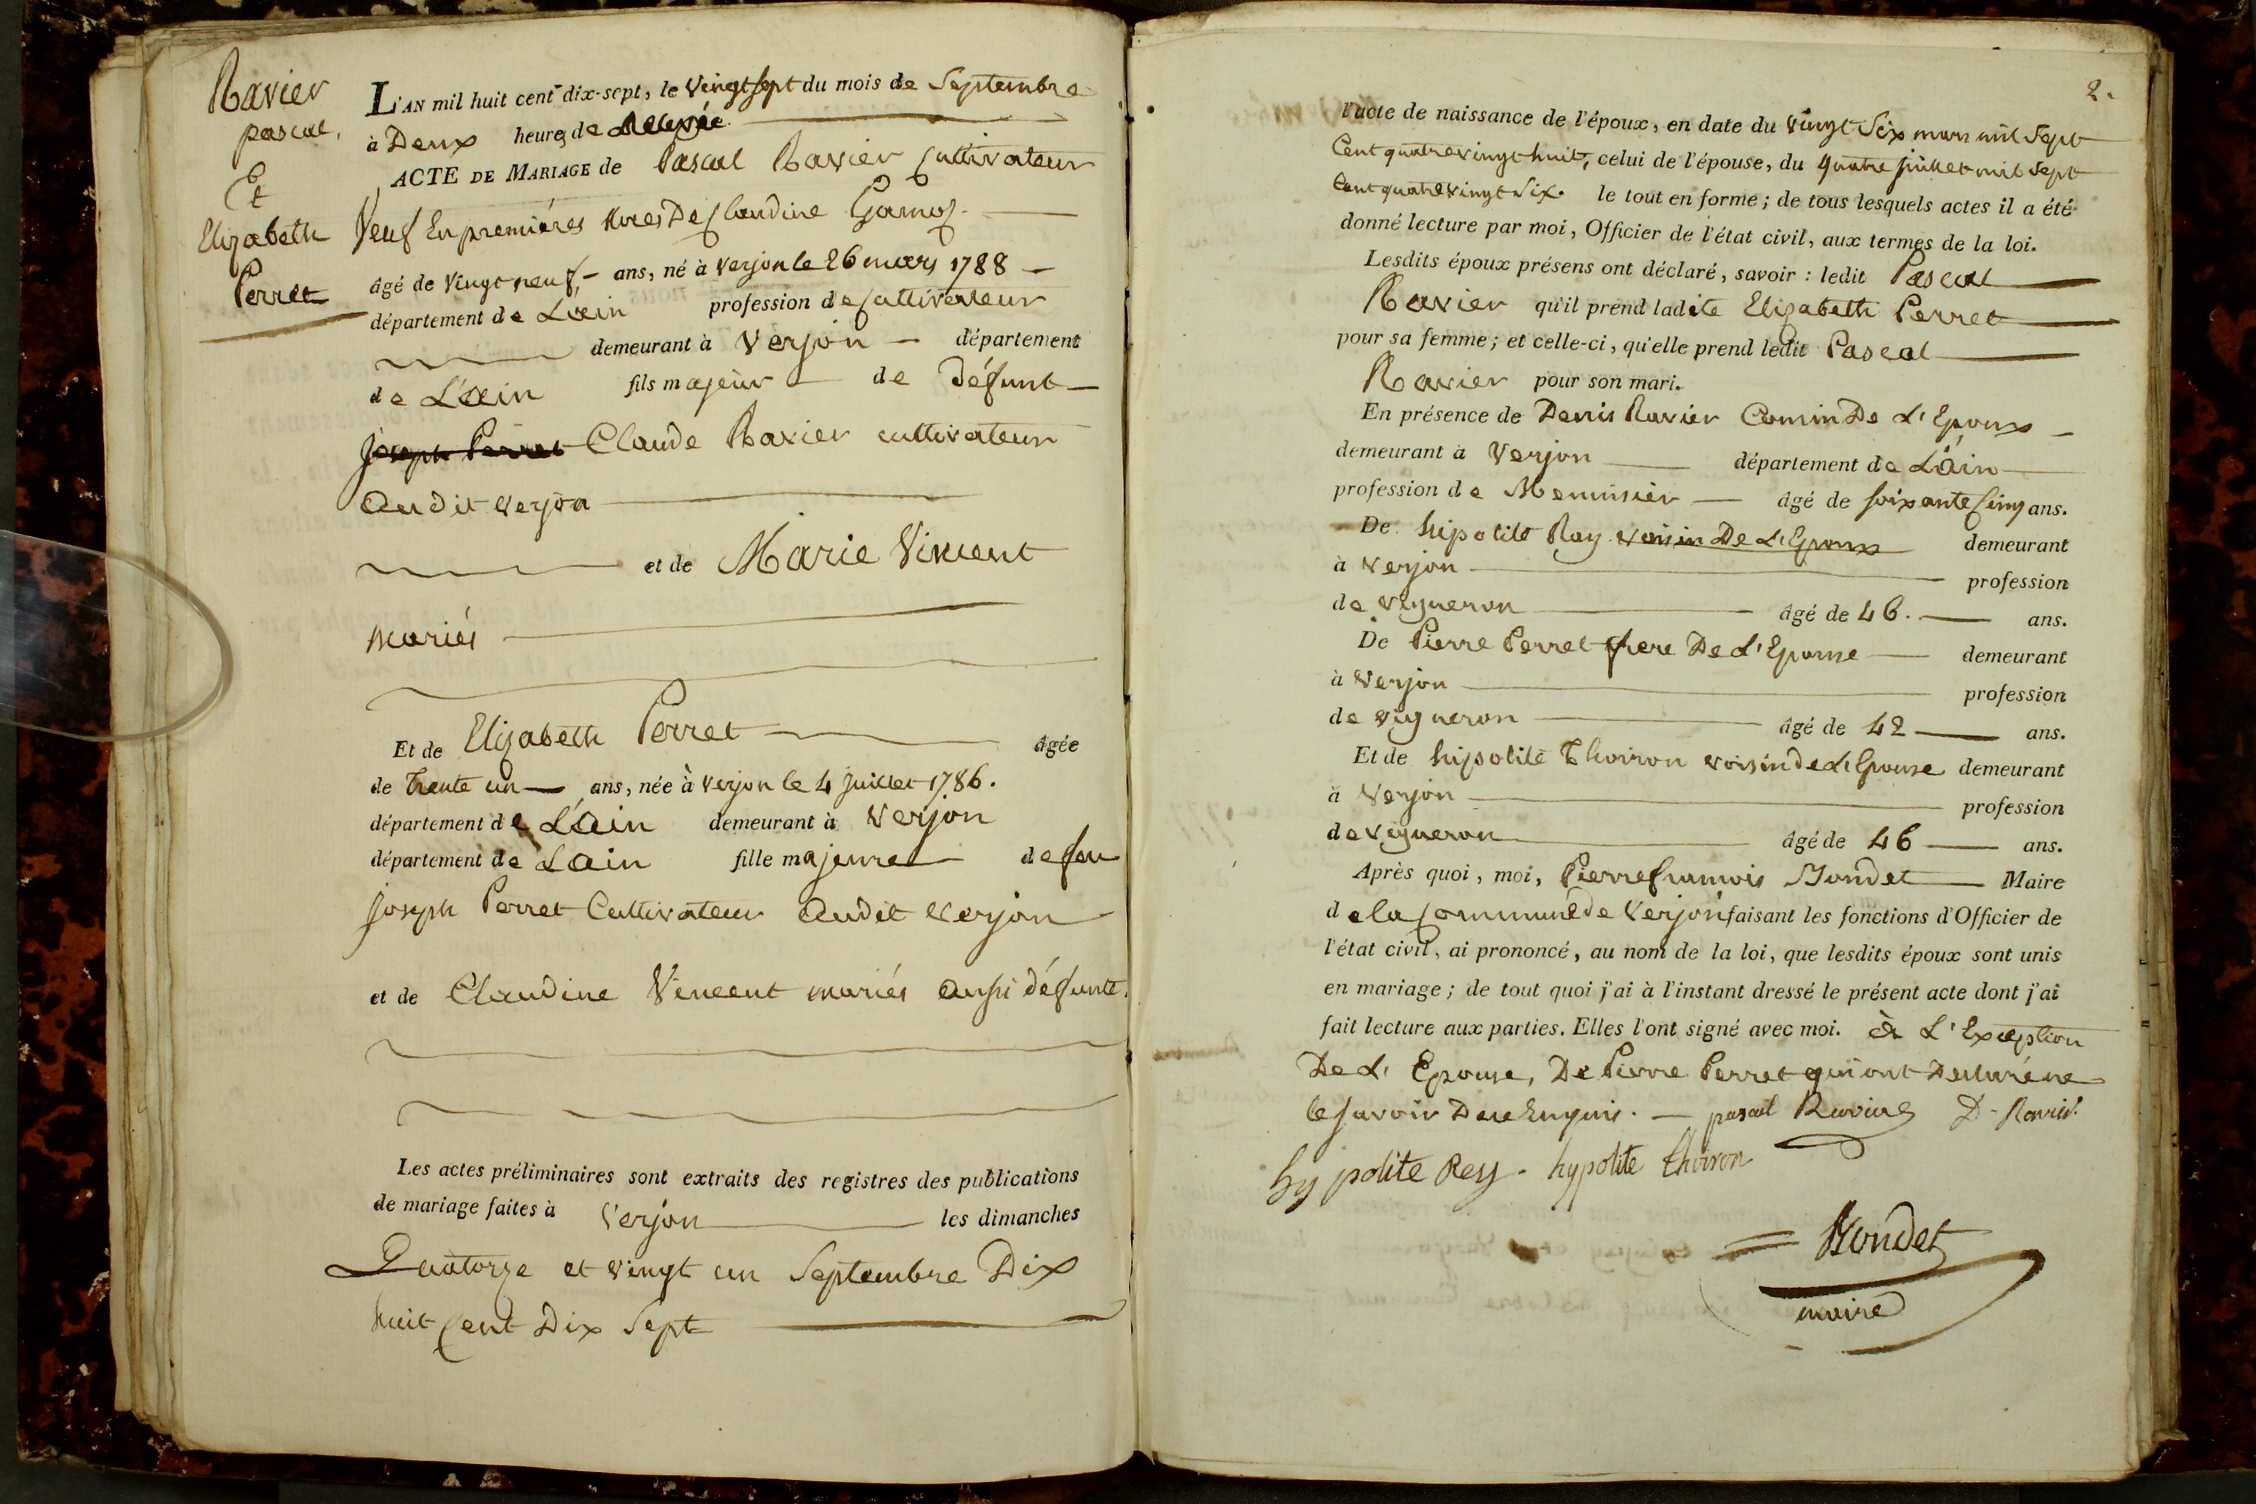 Ravier
pascal,
Et
Elizabeth
Perret
L'AN mil huit cent dix-sept, le Vingt sept du mois de Septembre
à Deux heures de Relevée
ACTE DE MARIAGE de Pascal Ravier Cultivateur
Veuf En premières De Claudine
âgé de Vingt neuf, ans, né à Verjon le 26 mars 1788
département de L'ain profession de Cultivateur
demeurant à Verjon département
de L'ain fils majeur de Défunt
Joseph Perret Claude Ravier cultivateur
Audit Verjon
et de Marie Vincent
mariés
Et de Elizabeth Perret âgée
de trente un ans, née à Verjon le 4 Juillet 1786.
département de L'Ain demeurant à Verjon
département de L'ain fille majeure de feu
Joseph Perret Cultivateur Audit Verjon
et de Claudine Vincent mariés Aussi défunte.
Les actes préliminaires sont extraits des registres des publications
de mariage faites à Verjon les dimanches
Quatorze et vingt un Septembre Dix
huit Cent Dix Sept
2.
l'acte de naissance de l'époux, en date du Vingt Six mars mil Sept
Cent quatrevingt huit, celui de l'épouse, du quatre juillet mil Sept
Cent quatrevingt Six. le tout en forme; de tous lesquels actes il a été
donné lecture par moi, Officier de l'état civil, aux termes de la loi.
Lesdits époux présens ont déclaré, savoir : ledit Pascal
Ravier qu'il prend ladite Elizabeth Perret
pour sa femme; et celle-ci, qu'elle prend ledit Pascal
Ravier pour son mari.
En présence de Denis Ravier De L'Epoux
demeurant à Verjon département de L'Ain
profession de Menuisier âgé de soixante Cinq ans.
De hipolite Ray voisin De L'Epoux demeurant
à Verjon profession
de Vigneron âgé de 46. ans.
De Pierre Perret frere De L'Epouse demeurant
à Verjon profession
de vigneron âgé de 42 ans.
Et de hipolite Thoiron voisin de L'Epouse demeurant
à Verjon profession
de Vigneron âgé de 46 ans.
Après quoi, moi, Pierre françois Nondet Maire
de la Commune de Verjon faisant les fonctions d'Officier de
l'état civil, ai prononcé, au nom de la loi, que lesdits époux sont unis
en mariage; de tout quoi j'ai à l'instant dressé le présent acte dont j'ai
fait lecture aux parties. Elles l'ont signé avec moi. à L'Exception
De L'Epouse, De Pierre Perret qui ont Déclaré ne
le savoir De ce Enquis. pascal Ravier D. Ravier
hypolite Rey. hypolite thoiron
Nondet
maire